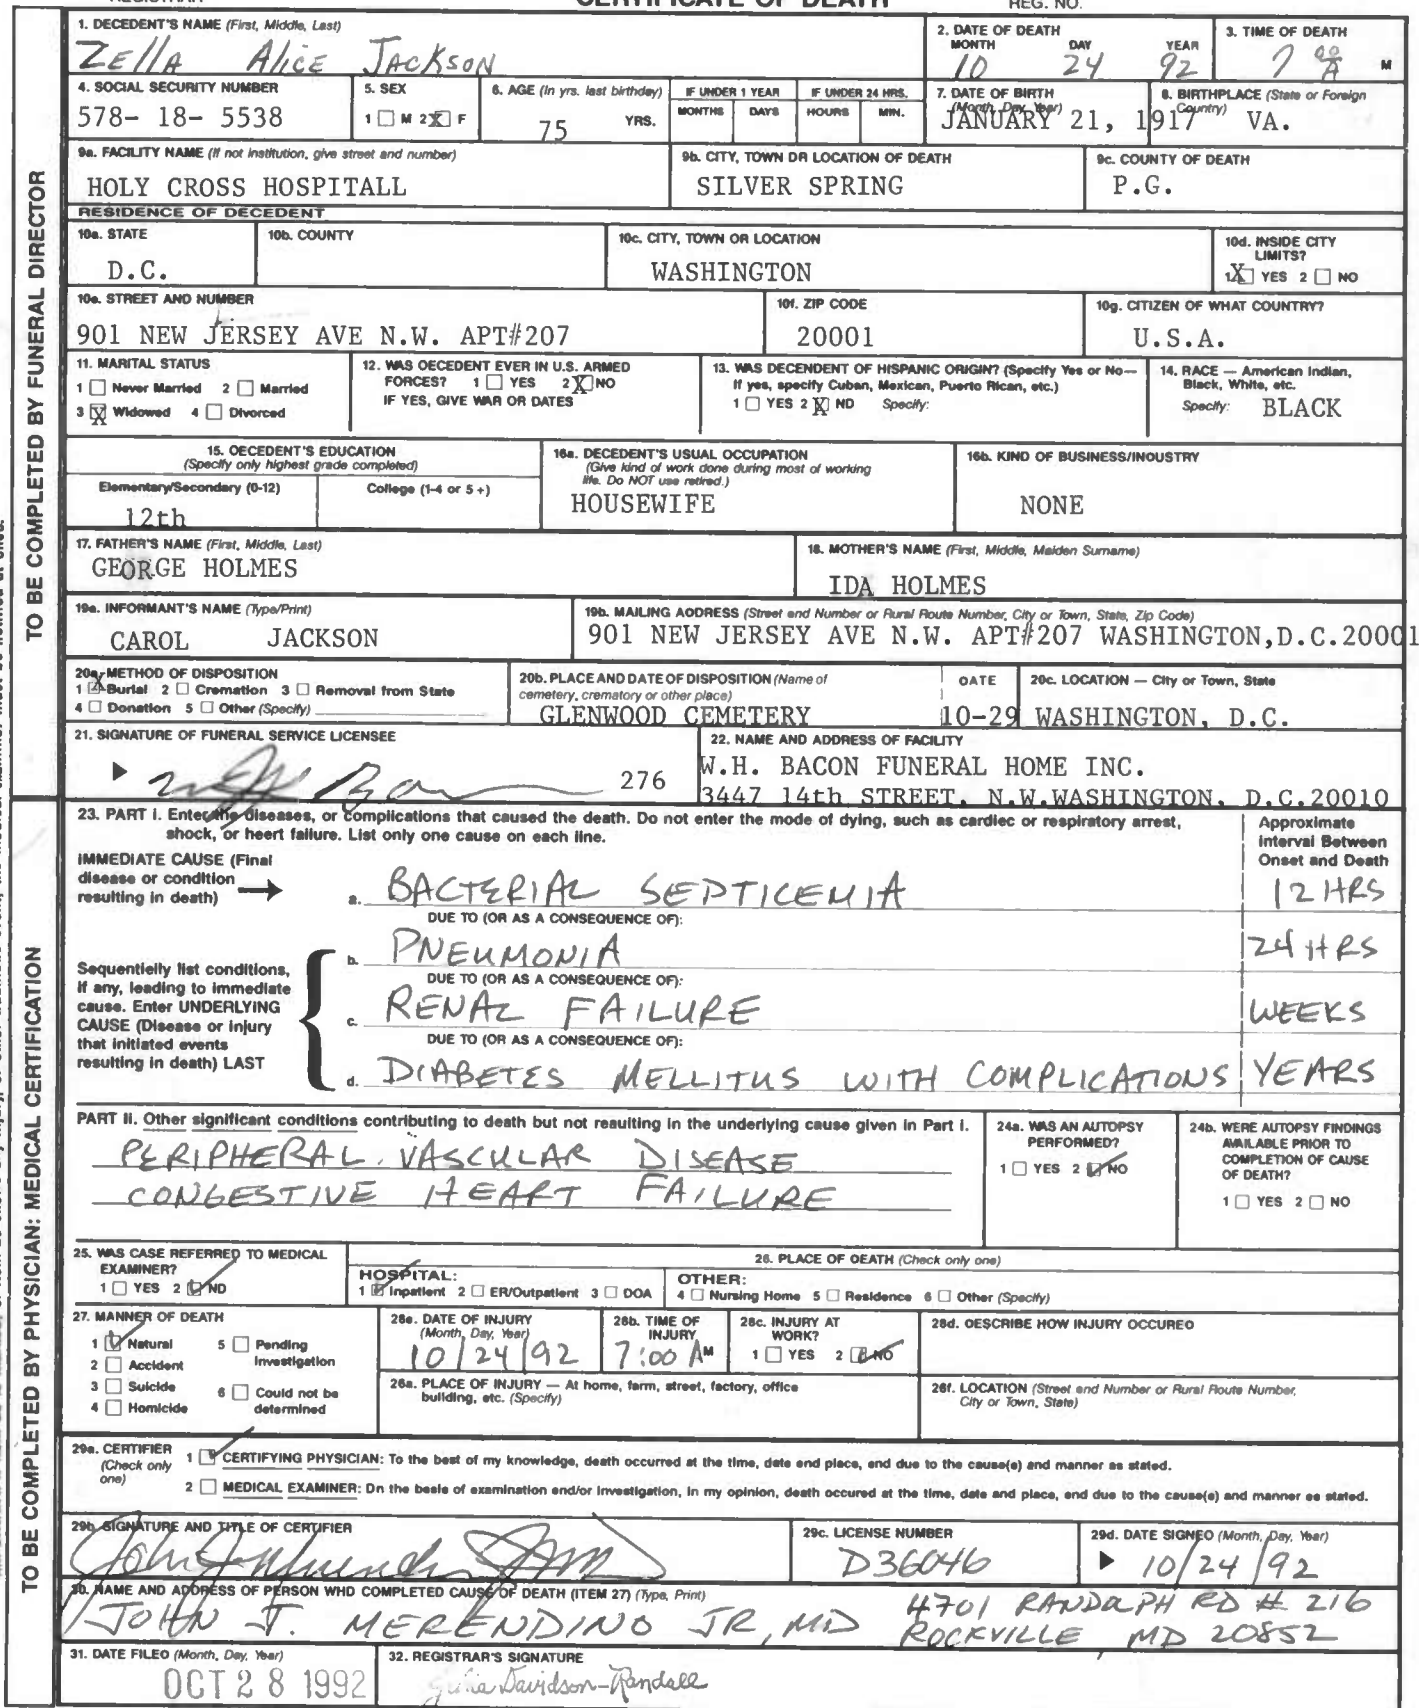 CERTIFICATE OF DEATH
REG. NO.
1. DECEDENT'S NAME (First, Middle, Last)
Zella Alice Jackson
2. DATE OF DEATH
MONTH DAY YEAR
10 24 92
3. TIME OF DEATH
7 00 A M
4. SOCIAL SECURITY NUMBER
578- 18- 5538
5. SEX
1 M 2 X F
6. AGE (In yrs. last birthday)
75 YRS.
IF UNDER 1 YEAR
MONTHS DAYS
IF UNDER 24 HRS.
HOURS MIN.
7. DATE OF BIRTH
(Month, Day, Year)
JANUARY 21, 1917
8. BIRTHPLACE (State or Foreign
Country)
VA.
9a. FACILITY NAME (If not institution, give street and number)
HOLY CROSS HOSPITALL
9b. CITY, TOWN OR LOCATION OF DEATH
SILVER SPRING
9c. COUNTY OF DEATH
P.G.
RESIDENCE OF DECEDENT
10a. STATE
D.C.
10b. COUNTY
10c. CITY, TOWN OR LOCATION
WASHINGTON
10d. INSIDE CITY
LIMITS?
1 X YES 2 NO
10e. STREET AND NUMBER
901 NEW JERSEY AVE N.W. APT#207
10f. ZIP CODE
20001
10g. CITIZEN OF WHAT COUNTRY?
U.S.A.
11. MARITAL STATUS
1 Never Married 2 Married
3 X Widowed 4 Divorced
12. WAS DECEDENT EVER IN U.S. ARMED
FORCES? 1 YES 2 X NO
IF YES, GIVE WAR OR DATES
13. WAS DECENDENT OF HISPANIC ORIGIN? (Specify Yes or No—
If yes, specify Cuban, Mexican, Puerto Rican, etc.)
1 YES 2 X NO Specify:
14. RACE — American Indian,
Black, White, etc.
Specify: BLACK
15. DECEDENT'S EDUCATION
(Specify only highest grade completed)
Elementary/Secondary (0-12) College (1-4 or 5+)
12th
16a. DECEDENT'S USUAL OCCUPATION
(Give kind of work done during most of working
life. Do NOT use retired.)
HOUSEWIFE
16b. KIND OF BUSINESS/INDUSTRY
NONE
17. FATHER'S NAME (First, Middle, Last)
GEORGE HOLMES
18. MOTHER'S NAME (First, Middle, Maiden Surname)
IDA HOLMES
19a. INFORMANT'S NAME (Type/Print)
CAROL JACKSON
19b. MAILING ADDRESS (Street and Number or Rural Route Number, City or Town, State, Zip Code)
901 NEW JERSEY AVE N.W. APT#207 WASHINGTON,D.C.20001
20a. METHOD OF DISPOSITION
1 X Burial 2 Cremation 3 Removal from State
4 Donation 5 Other (Specify)
20b. PLACE AND DATE OF DISPOSITION (Name of
cemetery, crematory or other place)
GLENWOOD CEMETERY
DATE
10-29
20c. LOCATION — City or Town, State
WASHINGTON, D.C.
21. SIGNATURE OF FUNERAL SERVICE LICENSEE
276
22. NAME AND ADDRESS OF FACILITY
W.H. BACON FUNERAL HOME INC.
3447 14th STREET, N.W.WASHINGTON, D.C.20010
TO BE COMPLETED BY FUNERAL DIRECTOR
23. PART I. Enter the diseases, or complications that caused the death. Do not enter the mode of dying, such as cardiec or respiratory arrest,
shock, or heert failure. List only one cause on each line.
Approximate
Interval Between
Onset and Death
IMMEDIATE CAUSE (Final
disease or condition
resulting in death)
a. BACTERIAL SEPTICEMIA 12 HRS
DUE TO (OR AS A CONSEQUENCE OF):
b. PNEUMONIA 24 HRS
DUE TO (OR AS A CONSEQUENCE OF):
Sequentielly list conditions,
if any, leading to immediate
cause. Enter UNDERLYING
CAUSE (Disease or injury
that initiated events
resulting in death) LAST
c. RENAL FAILURE WEEKS
DUE TO (OR AS A CONSEQUENCE OF):
d. DIABETES MELLITUS WITH COMPLICATIONS YEARS
PART II. Other significant conditions contributing to death but not resulting in the underlying cause given in Part I.
PERIPHERAL VASCULAR DISEASE
CONGESTIVE HEART FAILURE
24a. WAS AN AUTOPSY
PERFORMED?
1 YES 2 NO
24b. WERE AUTOPSY FINDINGS
AVAILABLE PRIOR TO
COMPLETION OF CAUSE
OF DEATH?
1 YES 2 NO
25. WAS CASE REFERRED TO MEDICAL
EXAMINER?
1 YES 2 NO
26. PLACE OF DEATH (Check only one)
HOSPITAL:
1 Inpatient 2 ER/Outpatient 3 DOA
OTHER:
4 Nursing Home 5 Residence 6 Other (Specify)
27. MANNER OF DEATH
1 Natural 5 Pending
2 Accident Investigation
3 Suicide 6 Could not be
4 Homicide determined
28a. DATE OF INJURY
(Month, Day, Year)
10/24/92
28b. TIME OF
INJURY
7:00 AM
28c. INJURY AT
WORK?
1 YES 2 NO
28d. DESCRIBE HOW INJURY OCCURED
28e. PLACE OF INJURY — At home, farm, street, factory, office
building, etc. (Specify)
28f. LOCATION (Street end Number or Rural Route Number,
City or Town, State)
29a. CERTIFIER
(Check only
one)
1 CERTIFYING PHYSICIAN: To the best of my knowledge, death occurred at the time, date end place, end due to the cause(e) and manner as stated.
2 MEDICAL EXAMINER: On the basis of examination end/or investigation, in my opinion, death occured at the time, date and place, end due to the cause(s) and manner ee stated.
29b. SIGNATURE AND TITLE OF CERTIFIER
29c. LICENSE NUMBER
D36046
29d. DATE SIGNED (Month, Day, Year)
10/24/92
30. NAME AND ADDRESS OF PERSON WHO COMPLETED CAUSE OF DEATH (ITEM 27) (Type, Print)
JOHN J. MERENDINO JR, MD 4701 RANDOLPH RD # 216
ROCKVILLE, MD 20852
31. DATE FILED (Month, Day, Year)
OCT 28 1992
32. REGISTRAR'S SIGNATURE
Julia Davidson-Randall
TO BE COMPLETED BY PHYSICIAN: MEDICAL CERTIFICATION